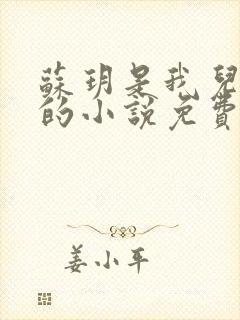 蘇玥是我兒
的小說免費
姜小平